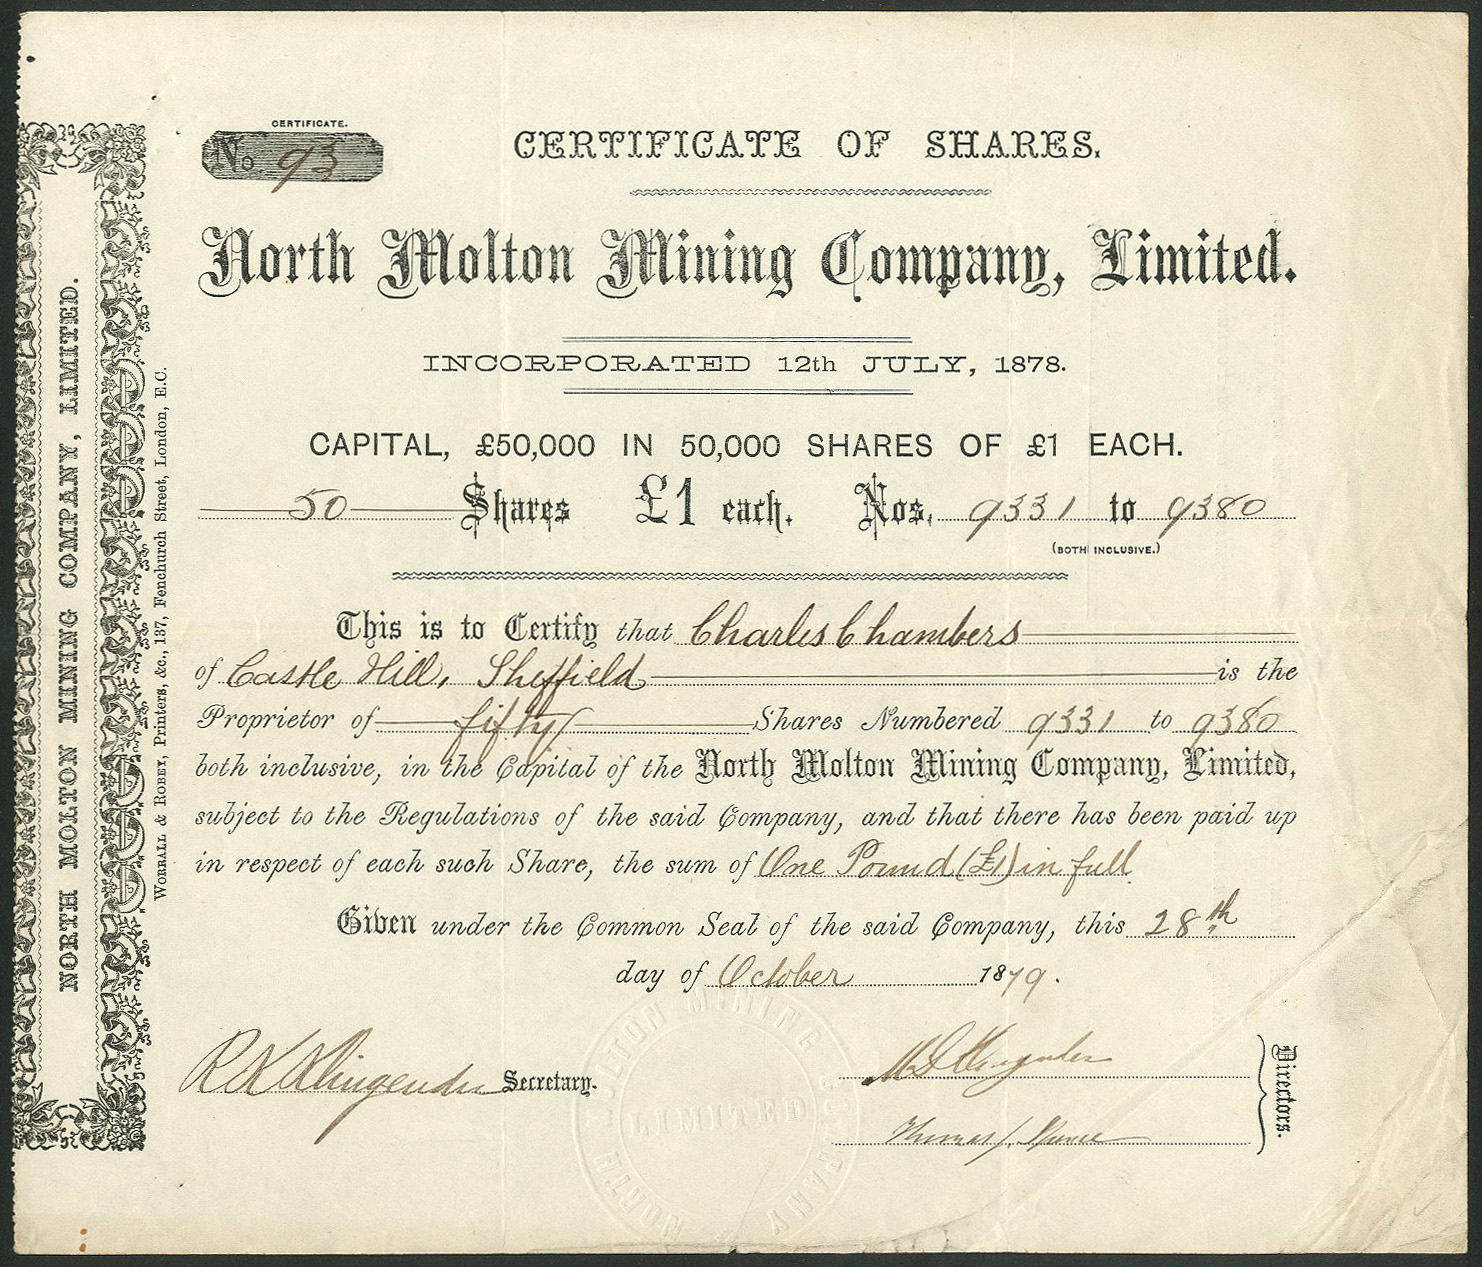 CERTIFICATE.
No. 93
CERTIFICATE OF SHARES.
North Molton Mining Company, Limited.
INCORPORATED 12th JULY, 1878.
CAPITAL, £50,000 IN 50,000 SHARES OF £1 EACH.
50 Shares £1 each. Nos. 9331 to 9380
(BOTH INCLUSIVE.)
This is to Certify that Charles Chambers
of Castle Hill, Sheffield is the
Proprietor of fifty Shares Numbered 9331 to 9380
both inclusive, in the Capital of the North Molton Mining Company, Limited,
subject to the Regulations of the said Company, and that there has been paid up
in respect of each such Share, the sum of One Pound (£1) in full
Given under the Common Seal of the said Company, this 28th
day of October 1879.
R K Klingender Secretary.
Klingender
Thomas
Directors.
NORTH MOLTON MINING COMPANY
LIMITED
NORTH MOLTON MINING COMPANY, LIMITED.
WORRALL & ROBEY, Printers, &c., 137, Fenchurch Street, London, E.C.